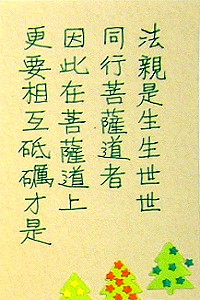 法親是生生世世
同行菩薩道者
因此在菩薩道上
更要相互砥礪才是